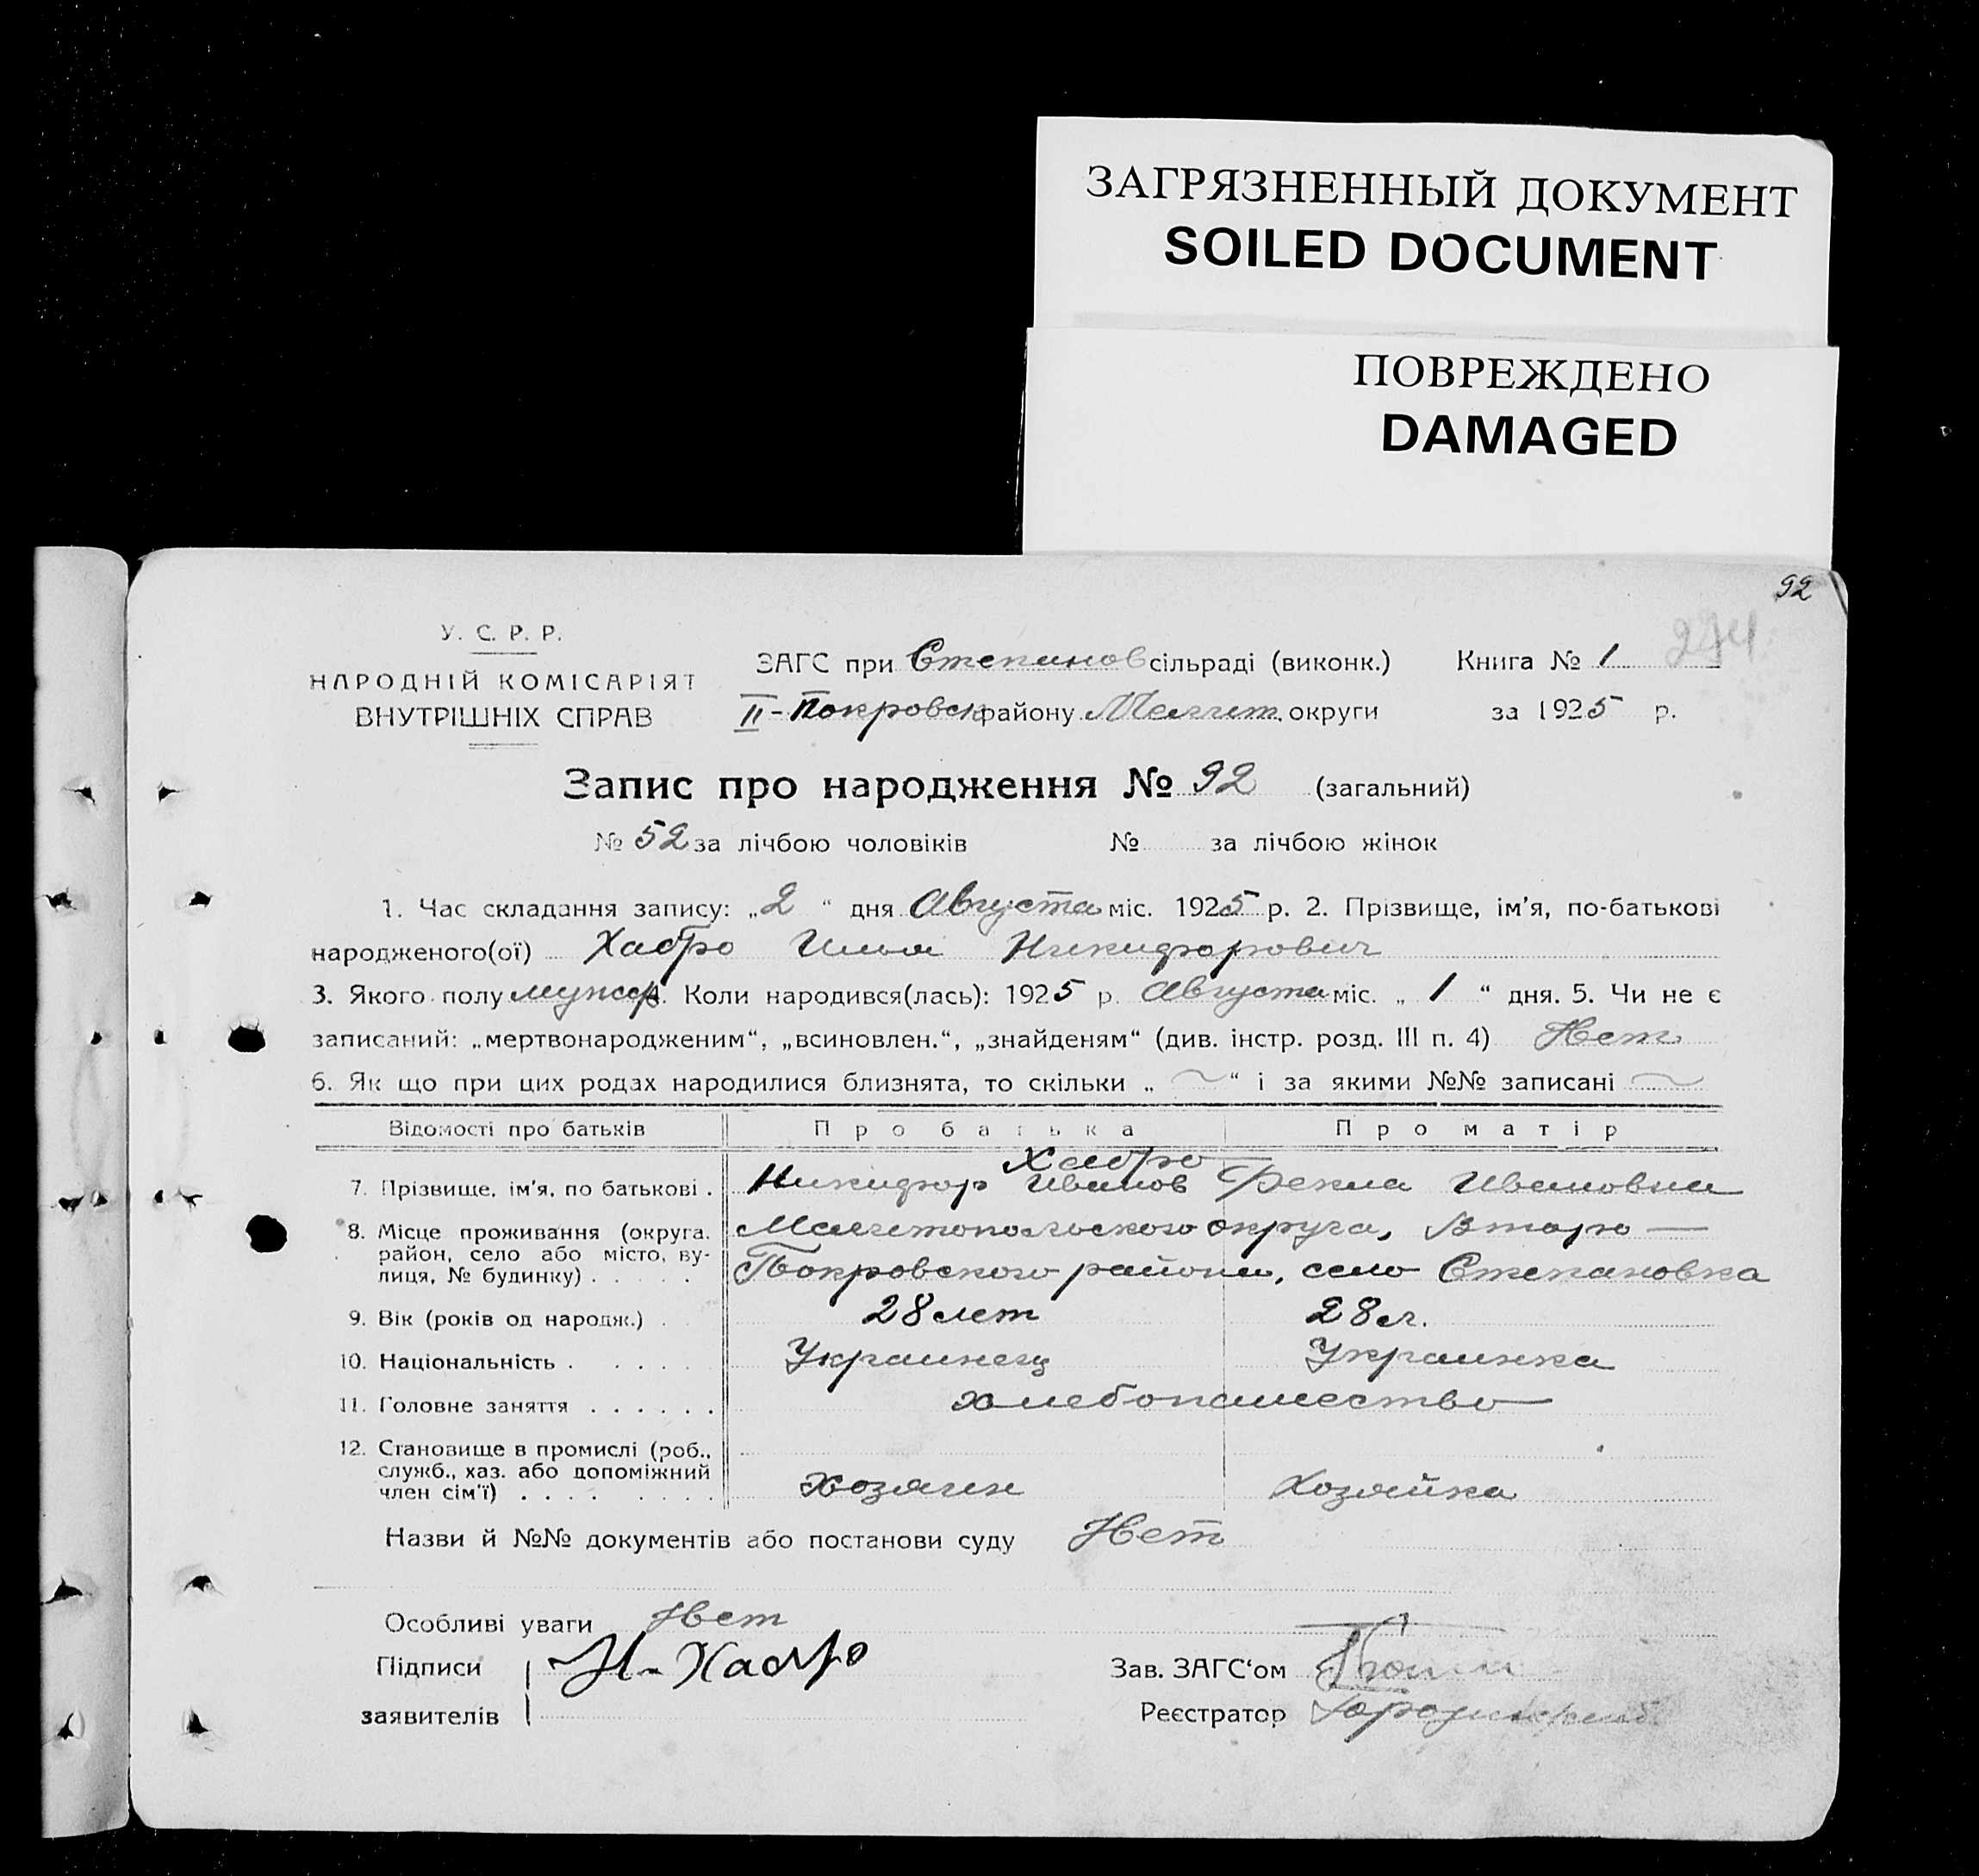 ЗАГРЯЗНЕННЫЙ ДОКУМЕНТ
SOILED DOCUMENT
ПОВРЕЖДЕНО
DAMAGED
92
274
У. С. Р. Р.
НАРОДНІЙ КОМІСАРІЯТ
ВНУТРІШНІХ СПРАВ
ЗАГС при Степанов сільраді (виконк.) Книга № 1
II-Покровск району Мелит. округи за 1925 р.
Запис про народження № 92 (загальний)
№ 52 за лічбою чоловіків № за лічбою жінок
1. Час складання запису: „2“ дня Августа міс. 1925 р. 2. Прізвище, ім'я, по-батькові
народженого(ої) Хабро Илья Никифорович
3. Якого полу мужск 4. Коли народився(лась): 1925 р. Августа міс. „1“ дня. 5. Чи не є
записаний: „мертвонародженим“, „всиновлен.“, „знайденям“ (див. інстр. розд. III п. 4) Нет
6. Як що при цих родах народилися близнята, то скільки „ “ і за якими №№ записані
Відомості про батьків Про батька Про матір
Хабро
7. Прізвище, ім'я, по батькові . Никифор Иванов Фекла Ивановна
8. Місце проживання (округа, Мелитопольского округа, Второ —
район, село або місто, ву- Покровского района, село Степановка
лиця, № будинку) . . . . .
9. Вік (років од народж.) . 28 лет 28 л.
10. Національність . . . . . Украинец Украинка
11. Головне заняття . . . . . . хлебопашество
12. Становище в промислі (роб.,
служб., хаз. або допоміжний
член сім'ї) . . . . . . . . Хозяин Хозяйка
Назви й №№ документів або постанови суду Нет
Особливі уваги Нет
Підписи Н. Хабро Зав. ЗАГС'ом
заявителів Реєстратор